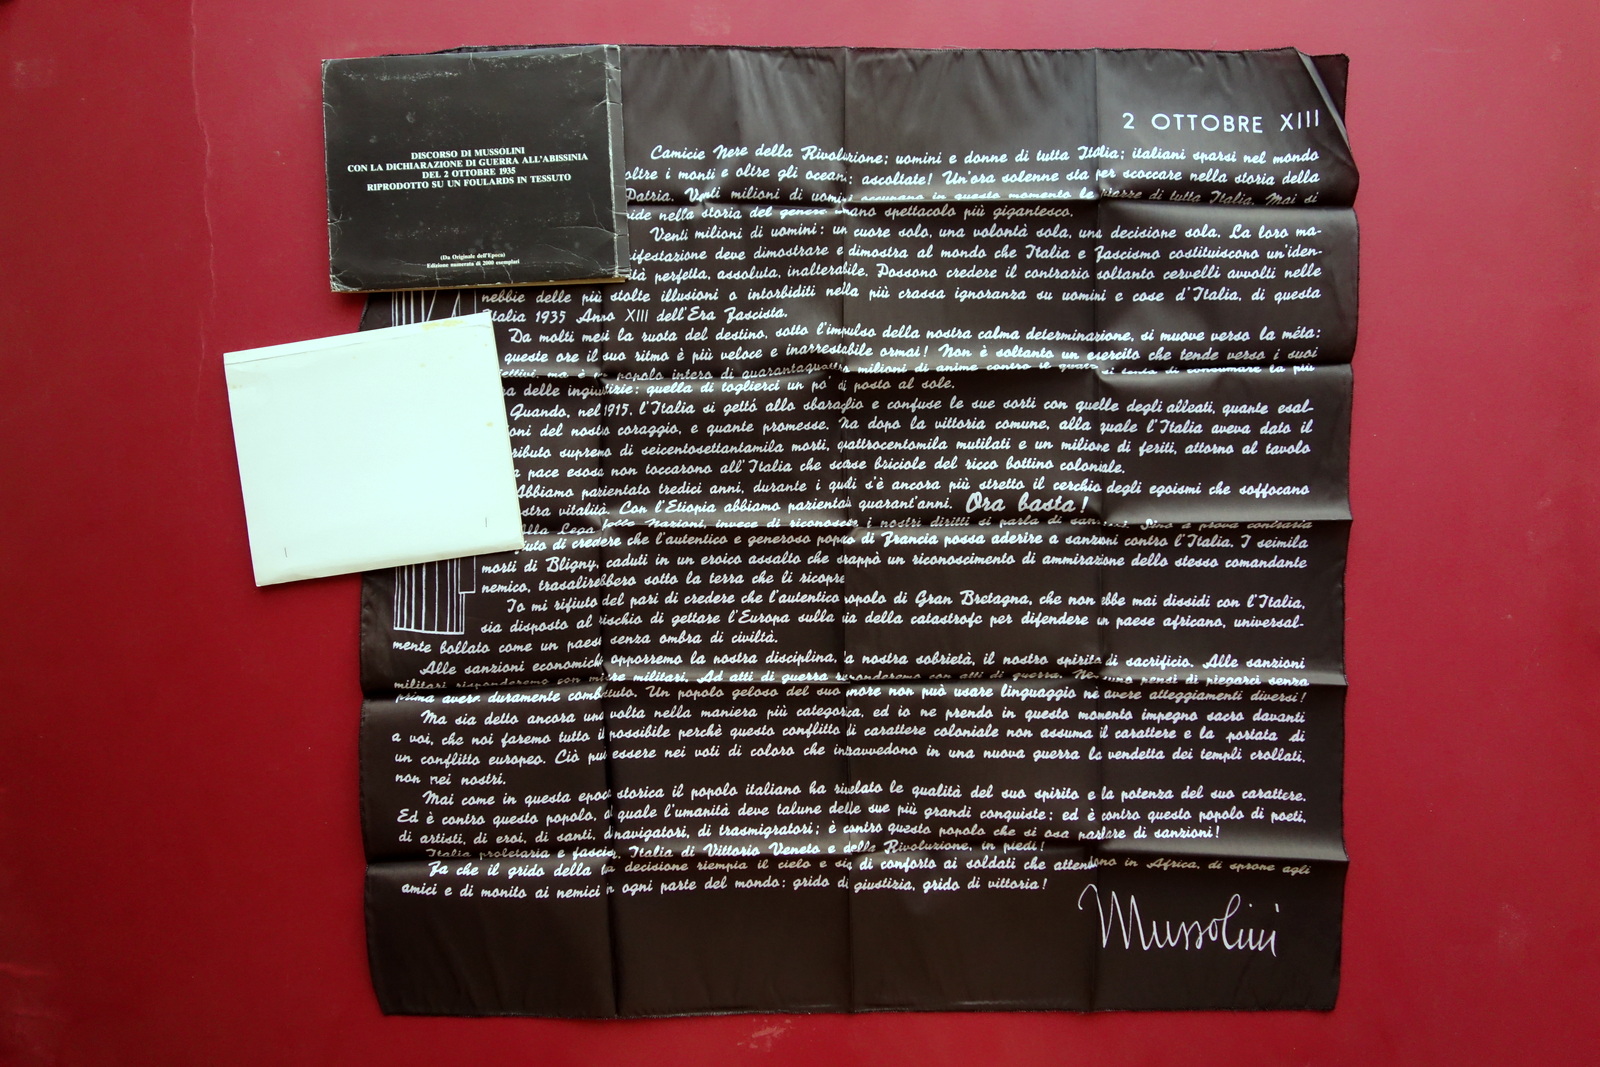 DISCORSO DI MUSSOLINI
CON LA DICHIARAZIONE DI GUERRA ALL'ABISSINIA
DEL 2 OTTOBRE 1935
RIPRODOTTO SU UN FOULARDS IN TESSUTO
(Da Originale dell'Epoca)
Edizione numerata di 2000 esemplari
2 OTTOBRE XIII
Camicie Nere della Rivoluzione; uomini e donne di tutta Italia; italiani sparsi nel mondo
oltre i monti e oltre gli oceani; ascoltate! Un'ora solenne sta per scoccare nella storia della
Patria. Venti milioni di uomini occupano in questo momento le piazze di tutta Italia. Mai si
vide nella storia del genere umano spettacolo più gigantesco.
Venti milioni di uomini: un cuore solo, una volontà sola, una decisione sola. La loro ma-
ifestazione deve dimostrare e dimostra al mondo che Italia e Fascismo costituiscono un'iden-
ità perfetta, assoluta, inalterabile. Possono credere il contrario soltanto cervelli avvolti nelle
nebbie delle più stolte illusioni o intorbiditi nella più crassa ignoranza su uomini e cose d'Italia, di questa
Italia 1935 Anno XIII dell'Era Fascista.
Da molti mesi la ruota del destino, sotto l'impulso della nostra calma determinazione, si muove verso la méta:
queste ore il suo ritmo è più veloce e inarrestabile ormai! Non è soltanto un esercito che tende verso i suoi
iettivi, ma è un popolo intero di quarantaquattro milioni di anime contro il quale si tenta di consumare la più
ra delle ingiustizie: quella di toglierci un po' di posto al sole.
Quando, nel 1915, l'Italia si gettò allo sbaraglio e confuse le sue sorti con quelle degli alleati, quante esal-
oni del nostro coraggio, e quante promesse. Ma dopo la vittoria comune, alla quale l'Italia aveva dato il
ributo supremo di seicentosettantamila morti, quattrocentomila mutilati e un milione di feriti, attorno al tavolo
a pace esosa non toccarono all'Italia che scarse briciole del ricco bottino coloniale.
Abbiamo pazientato tredici anni, durante i quali s'è ancora più stretto il cerchio degli egoismi che soffocano
stra vitalità. Con l'Etiopia abbiamo pazientato quarant'anni. Ora basta!
Alla Lega delle Nazioni, invece di riconoscere i nostri diritti si parla di sanzioni. Sino a prova contraria
iuto di credere che l'autentico e generoso popolo di Francia possa aderire a sanzioni contro l'Italia. I seimila
morti di Bligny, caduti in un eroico assalto che strappò un riconoscimento di ammirazione dello stesso comandante
nemico, trasalirebbero sotto la terra che li ricopre.
Io mi rifiuto del pari di credere che l'autentico popolo di Gran Bretagna, che non ebbe mai dissidi con l'Italia,
sia disposto al rischio di gettare l'Europa sulla via della catastrofe per difendere un paese africano, universal-
mente bollato come un paese senza ombra di civiltà.
Alle sanzioni economiche opporremo la nostra disciplina, la nostra sobrietà, il nostro spirito di sacrificio. Alle sanzioni
militari risponderemo con misure militari. Ad atti di guerra risponderemo con atti di guerra. Nessuno pensi di piegarci senza
prima avere duramente combattuto. Un popolo geloso del suo onore non può usare linguaggio nè avere atteggiamenti diversi!
Ma sia detto ancora una volta nella maniera più categorica, ed io ne prendo in questo momento impegno sacro davanti
a voi, che noi faremo tutto il possibile perchè questo conflitto di carattere coloniale non assuma il carattere e la portata di
un conflitto europeo. Ciò può essere nei voti di coloro che intravvedono in una nuova guerra la vendetta dei templi crollati,
non nei nostri.
Mai come in questa epoca storica il popolo italiano ha rivelato le qualità del suo spirito e la potenza del suo carattere.
Ed è contro questo popolo, al quale l'umanità deve talune delle sue più grandi conquiste; ed è contro questo popolo di poeti,
di artisti, di eroi, di santi, di navigatori, di trasmigratori; è contro questo popolo che si osa parlare di sanzioni!
Italia proletaria e fascista, Italia di Vittorio Veneto e della Rivoluzione, in piedi!
Fa che il grido della tua decisione riempia il cielo e sia di conforto ai soldati che attendono in Africa, di sprone agli
amici e di monito ai nemici in ogni parte del mondo: grido di giustizia, grido di vittoria!
Mussolini